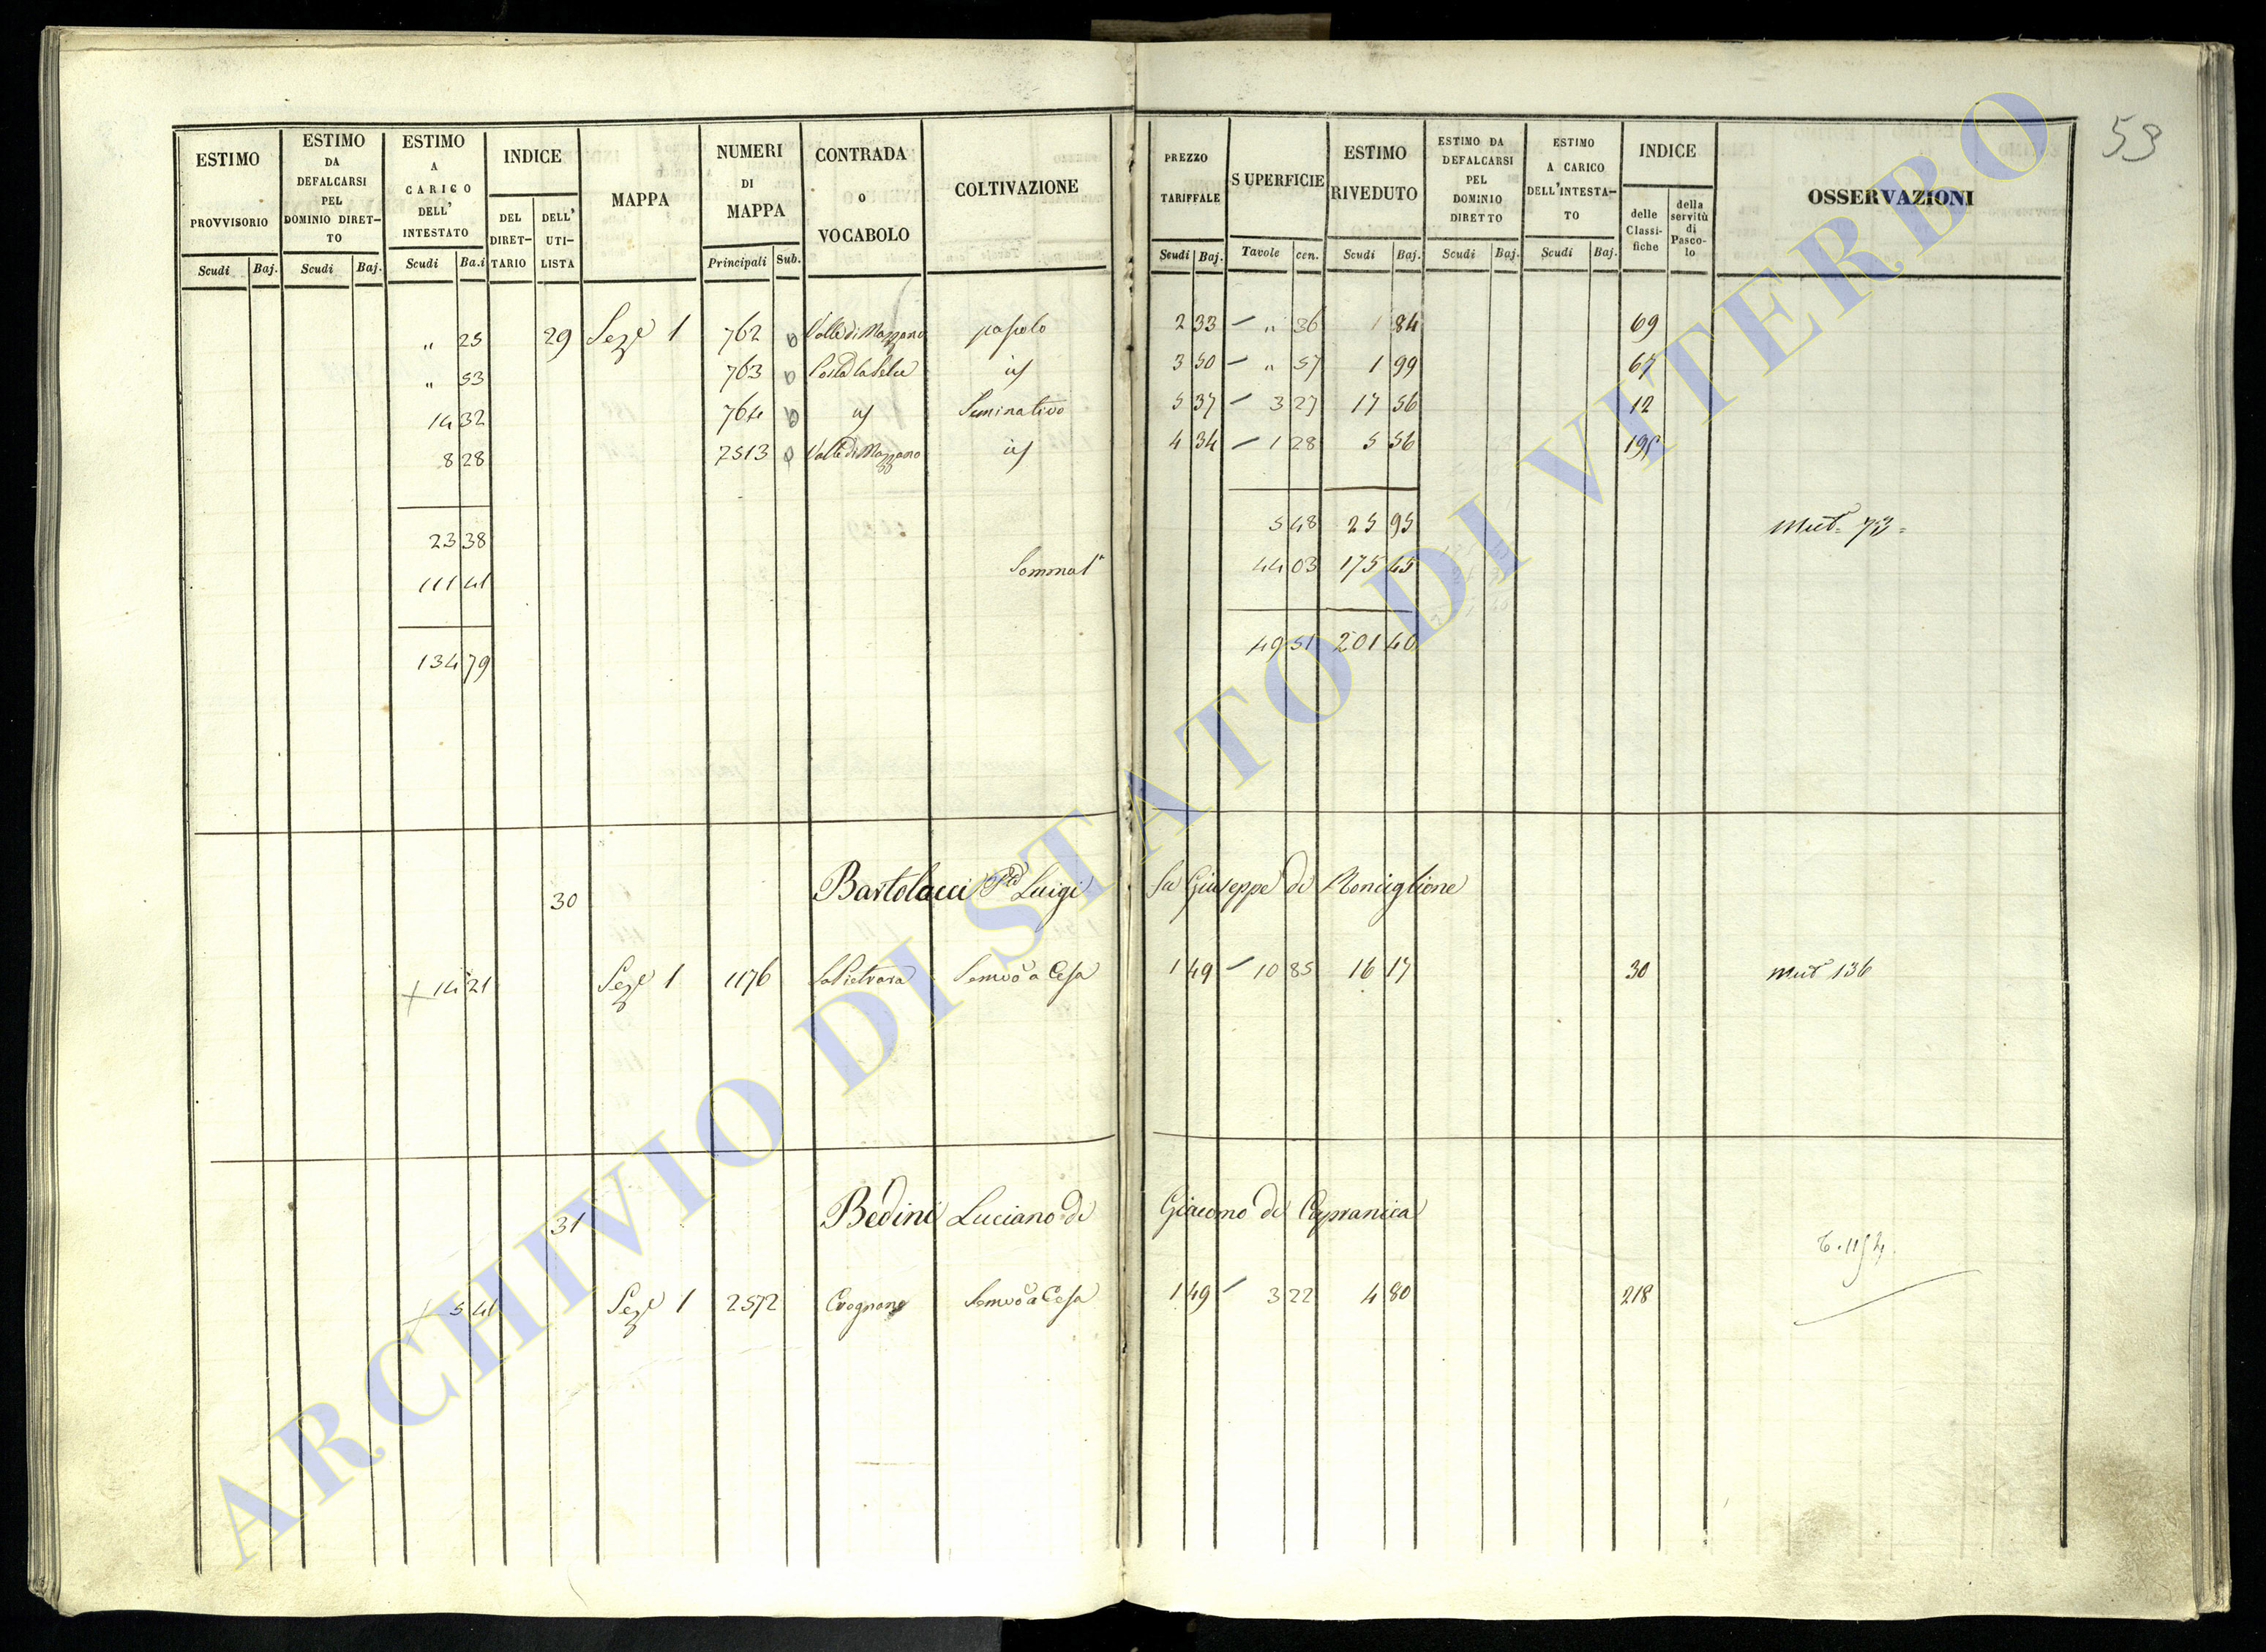 53
ESTIMO PROVVISORIO
ESTIMO DA DEFALCARSI PEL DOMINIO DIRETTO
ESTIMO A CARICO DELL' INTESTATO
INDICE
DEL DIRETTARIO
DELL' UTILISTA
MAPPA
NUMERI DI MAPPA
CONTRADA o VOCABOLO
COLTIVAZIONE
PREZZO TARIFFALE
SUPERFICIE
ESTIMO RIVEDUTO
ESTIMO DA DEFALCARSI PEL DOMINIO DIRETTO
ESTIMO A CARICO DELL'INTESTATO
INDICE
delle Classifiche
della servitù di Pascolo
OSSERVAZIONI
Scudi Baj. Scudi Baj. Scudi Ba.i Principali Sub. Scudi Baj. Tavole cen. Scudi Baj. Scudi Baj. Scudi Baj.
" 25 29 Seze 1 762 Valle di Mazzano pascolo 2 33 – " 36 1 84 69
" 53 763 id 3 50 – " 57 1 99 67
14 32 764 id Seminativo 5 37 – 3 27 17 56 12
8 28 2513 Valle di Mazzano id 4 34 – 1 28 5 56 195
23 38 5 48 25 95 Mut. 73
111 41 Sommat 44 03 175 45
134 79 49 51 201 40
30 Bartolacci Luigi fu Giuseppe di Ronciglione
+ 14 21 Seze 1 1176 La Pietrara Semvo a Cesa 1 49 – 10 85 16 17 30 Mut 136
31 Bedini Luciano di Giacomo di Capranica
+ 5 41 Seze 1 2572 Crognano Semvo a Cesa 1 49 – 3 22 4 80 218
ARCHIVIO DI STATO DI VITERBO